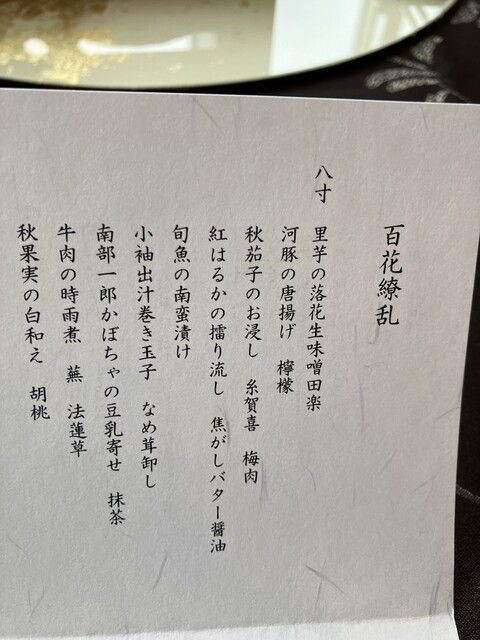 百花繚乱
八寸　里芋の落花生味噌田楽
河豚の唐揚げ　檸檬
秋茄子のお浸し　糸賀喜　梅肉
紅はるかの擂り流し　焦がしバター醤油
旬魚の南蛮漬け
小袖出汁巻き玉子　なめ茸卸し
南部一郎かぼちゃの豆乳寄せ　抹茶
牛肉の時雨煮　蕪　法蓮草
秋果実の白和え　胡桃